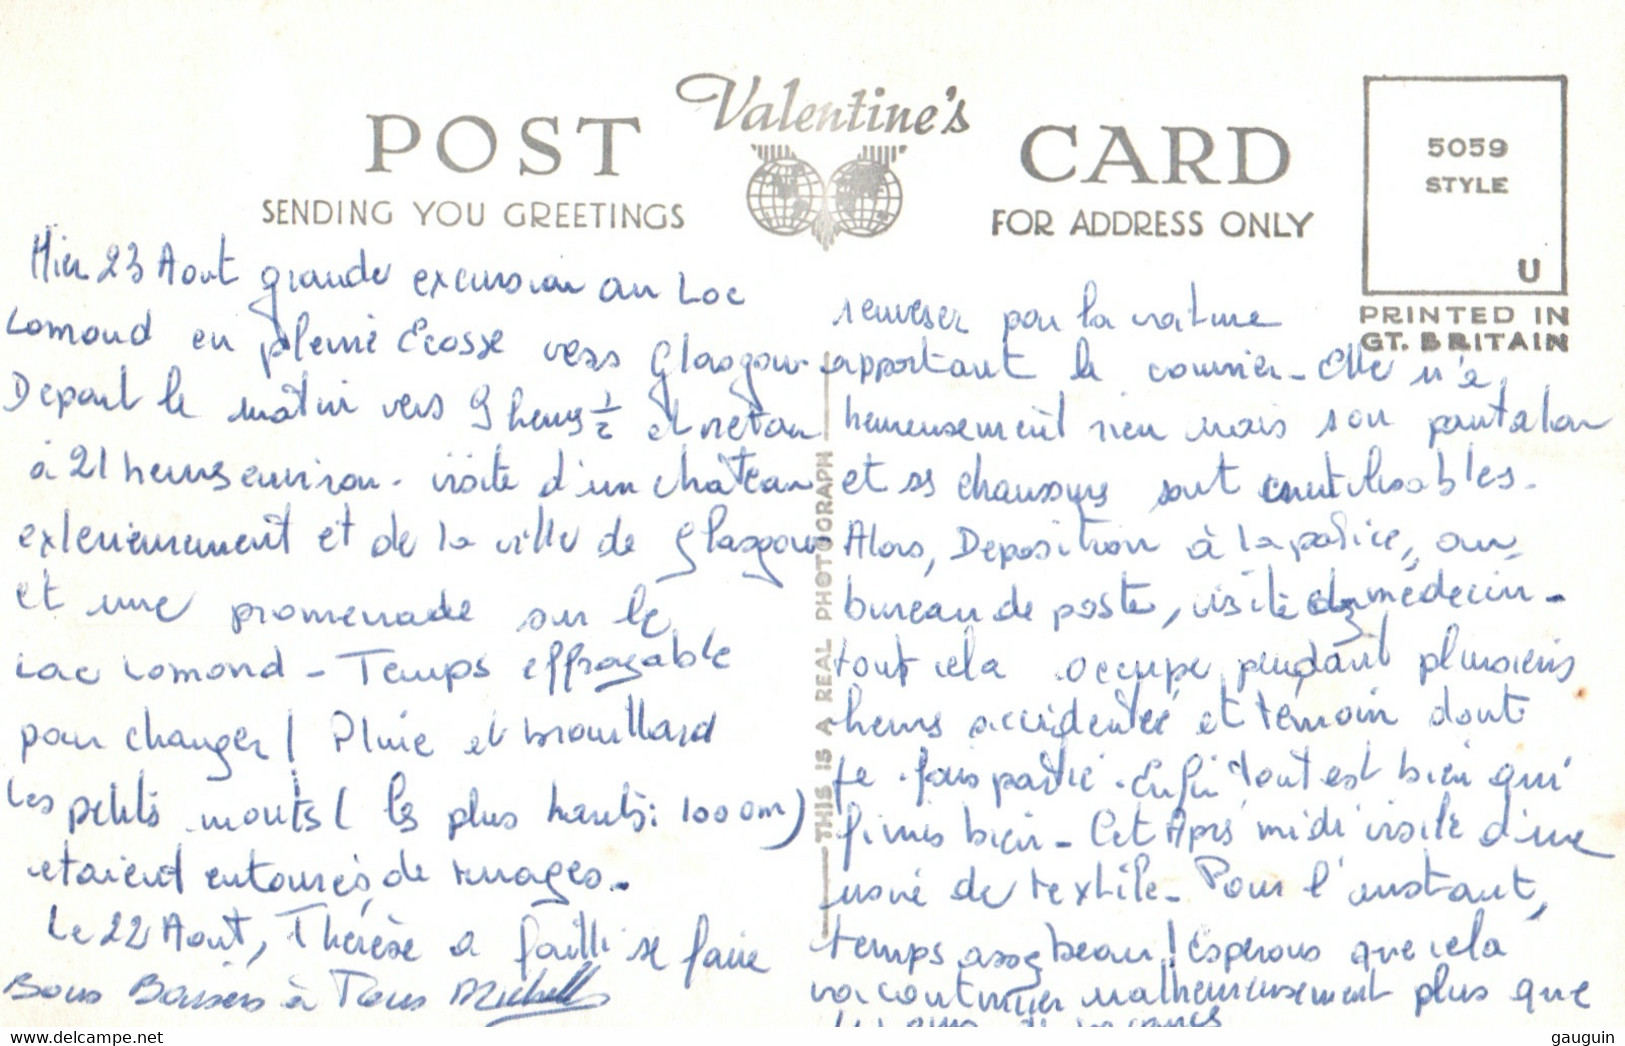 POST Valentine's CARD
SENDING YOU GREETINGS
FOR ADDRESS ONLY
5059
STYLE
U
PRINTED IN
GT. BRITAIN
THIS IS A REAL PHOTOGRAPH
Hier 23 Aout grande excursion au Loc
Lomond en pleine Ecosse vers Glasgow.
Depart le matin vers 9 heures 1/2 et retour
à 21 heures environ. visite d'un chateau
exterieurement et de la ville de Glasgow
et une promenade sur le
Lac Lomond - Temps effroyable
pour changer! Pluie et brouillard
Les petits monts (les plus hauts: 1000m)
etaient entourés de nuages.
Le 22 Aout, Thérèse a failli se faire
Bons Baisers à Tous Michelle
renverser par la voiture
apportant le courrier - Elle n'a
heureusement rien mais son pantalon
et ses chaussures sont inutilisables.
Alors, Deposition à la police, au
bureau de poste, visite du médecin -
tout cela occupe pendant plusieurs
heures accidentée et témoin dont
je fais partie. Enfin tout est bien qui
finis bien - Cet Après midi visite d'une
usine de textile - Pour l'instant,
temps assez beau! Esperons que cela
va continuer malheureusement plus que